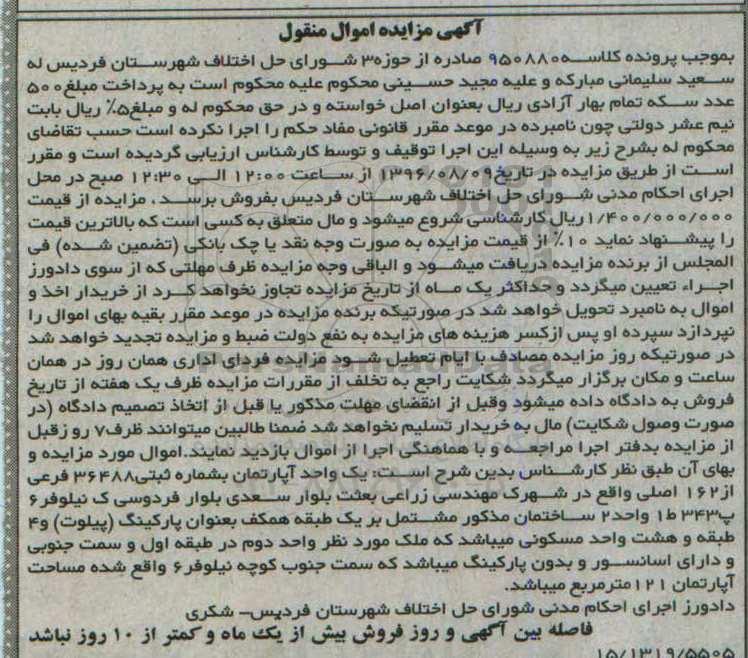 آگهی مزایده اموال منقول
بموجب پرونده کلاسه۹۵۰۸۸۰ صادره از حوزه۳ شورای حل اختلاف شهرستان فردیس له
سعید سلیمانی مبارکه و علیه مجید حسینی محکوم علیه محکوم است به پرداخت مبلغ۵۰۰
عدد سکه تمام بهار آزادی ریال بعنوان اصل خواسته و در حق محکوم له و مبلغ۵٪ ریال بابت
نیم عشر دولتی چون نامبرده در موعد مقرر قانونی مفاد حکم را اجرا نکرده است حسب تقاضای
محکوم له بشرح زیر به وسیله این اجرا توقیف و توسط کارشناس ارزیابی گردیده است و مقرر
است از طریق مزایده در تاریخ۱۳۹۶/۰۸/۰۹ از ساعت ۱۲:۰۰ الی ۱۲:۳۰ صبح در محل
اجرای احکام مدنی شورای حل اختلاف شهرستان فردیس بفروش برسد ، مزایده از قیمت
۱/۴۰۰/۰۰۰/۰۰۰ریال کارشناسی شروع میشود و مال متعلق به کسی است که بالاترین قیمت
را پیشنهاد نماید ۱۰٪ از قیمت مزایده به صورت وجه نقد یا چک بانکی (تضمین شده) فی
المجلس از برنده مزایده دریافت میشود و الباقی وجه مزایده ظرف مهلتی که از سوی دادورز
اجراء تعیین میگردد و حداکثر یک ماه از تاریخ مزایده تجاوز نخواهد کرد از خریدار اخذ و
اموال به نامبرد تحویل خواهد شد در صورتیکه برنده مزایده در موعد مقرر بقیه بهای اموال را
نپردازد سپرده او پس ازکسر هزینه های مزایده به نفع دولت ضبط و مزایده تجدید خواهد شد
در صورتیکه روز مزایده مصادف با ایام تعطیل شود مزایده فردای اداری همان روز در همان
ساعت و مکان برگزار میگردد شکایت راجع به تخلف از مقررات مزایده ظرف یک هفته از تاریخ
فروش به دادگاه داده میشود وقبل از انقضای مهلت مذکور یا قبل از اتخاذ تصمیم دادگاه (در
صورت وصول شکایت) مال به خریدار تسلیم نخواهد شد ضمنا طالبین میتوانند ظرف۷ رو زقبل
از مزایده بدفتر اجرا مراجعه و با هماهنگی اجرا از اموال بازدید نمایند.اموال مورد مزایده و
بهای آن طبق نظر کارشناس بدین شرح است: یک واحد آپارتمان بشماره ثبتی۳۶۴۸۸ فرعی
از۱۶۲ اصلی واقع در شهرک مهندسی زراعی بعثت بلوار سعدی بلوار فردوسی ک نیلوفر۶
پ۳۴۳ ط۱ واحد۲ ساختمان مذکور مشتمل بر یک طبقه همکف بعنوان پارکینگ (پیلوت) و۴
طبقه و هشت واحد مسکونی میباشد که ملک مورد نظر واحد دوم در طبقه اول و سمت جنوبی
و دارای اسانسور و بدون پارکینگ میباشد که سمت جنوب کوچه نیلوفر۶ واقع شده مساحت
آپارتمان ۱۲۱مترمربع میباشد.
دادورز اجرای احکام مدنی شورای حل اختلاف شهرستان فردیس– شکری
فاصله بین آگهی و روز فروش بیش از یک ماه و کمتر از ۱۰ روز نباشد
۱۵/۱۳۱۹/۵۵۰۵